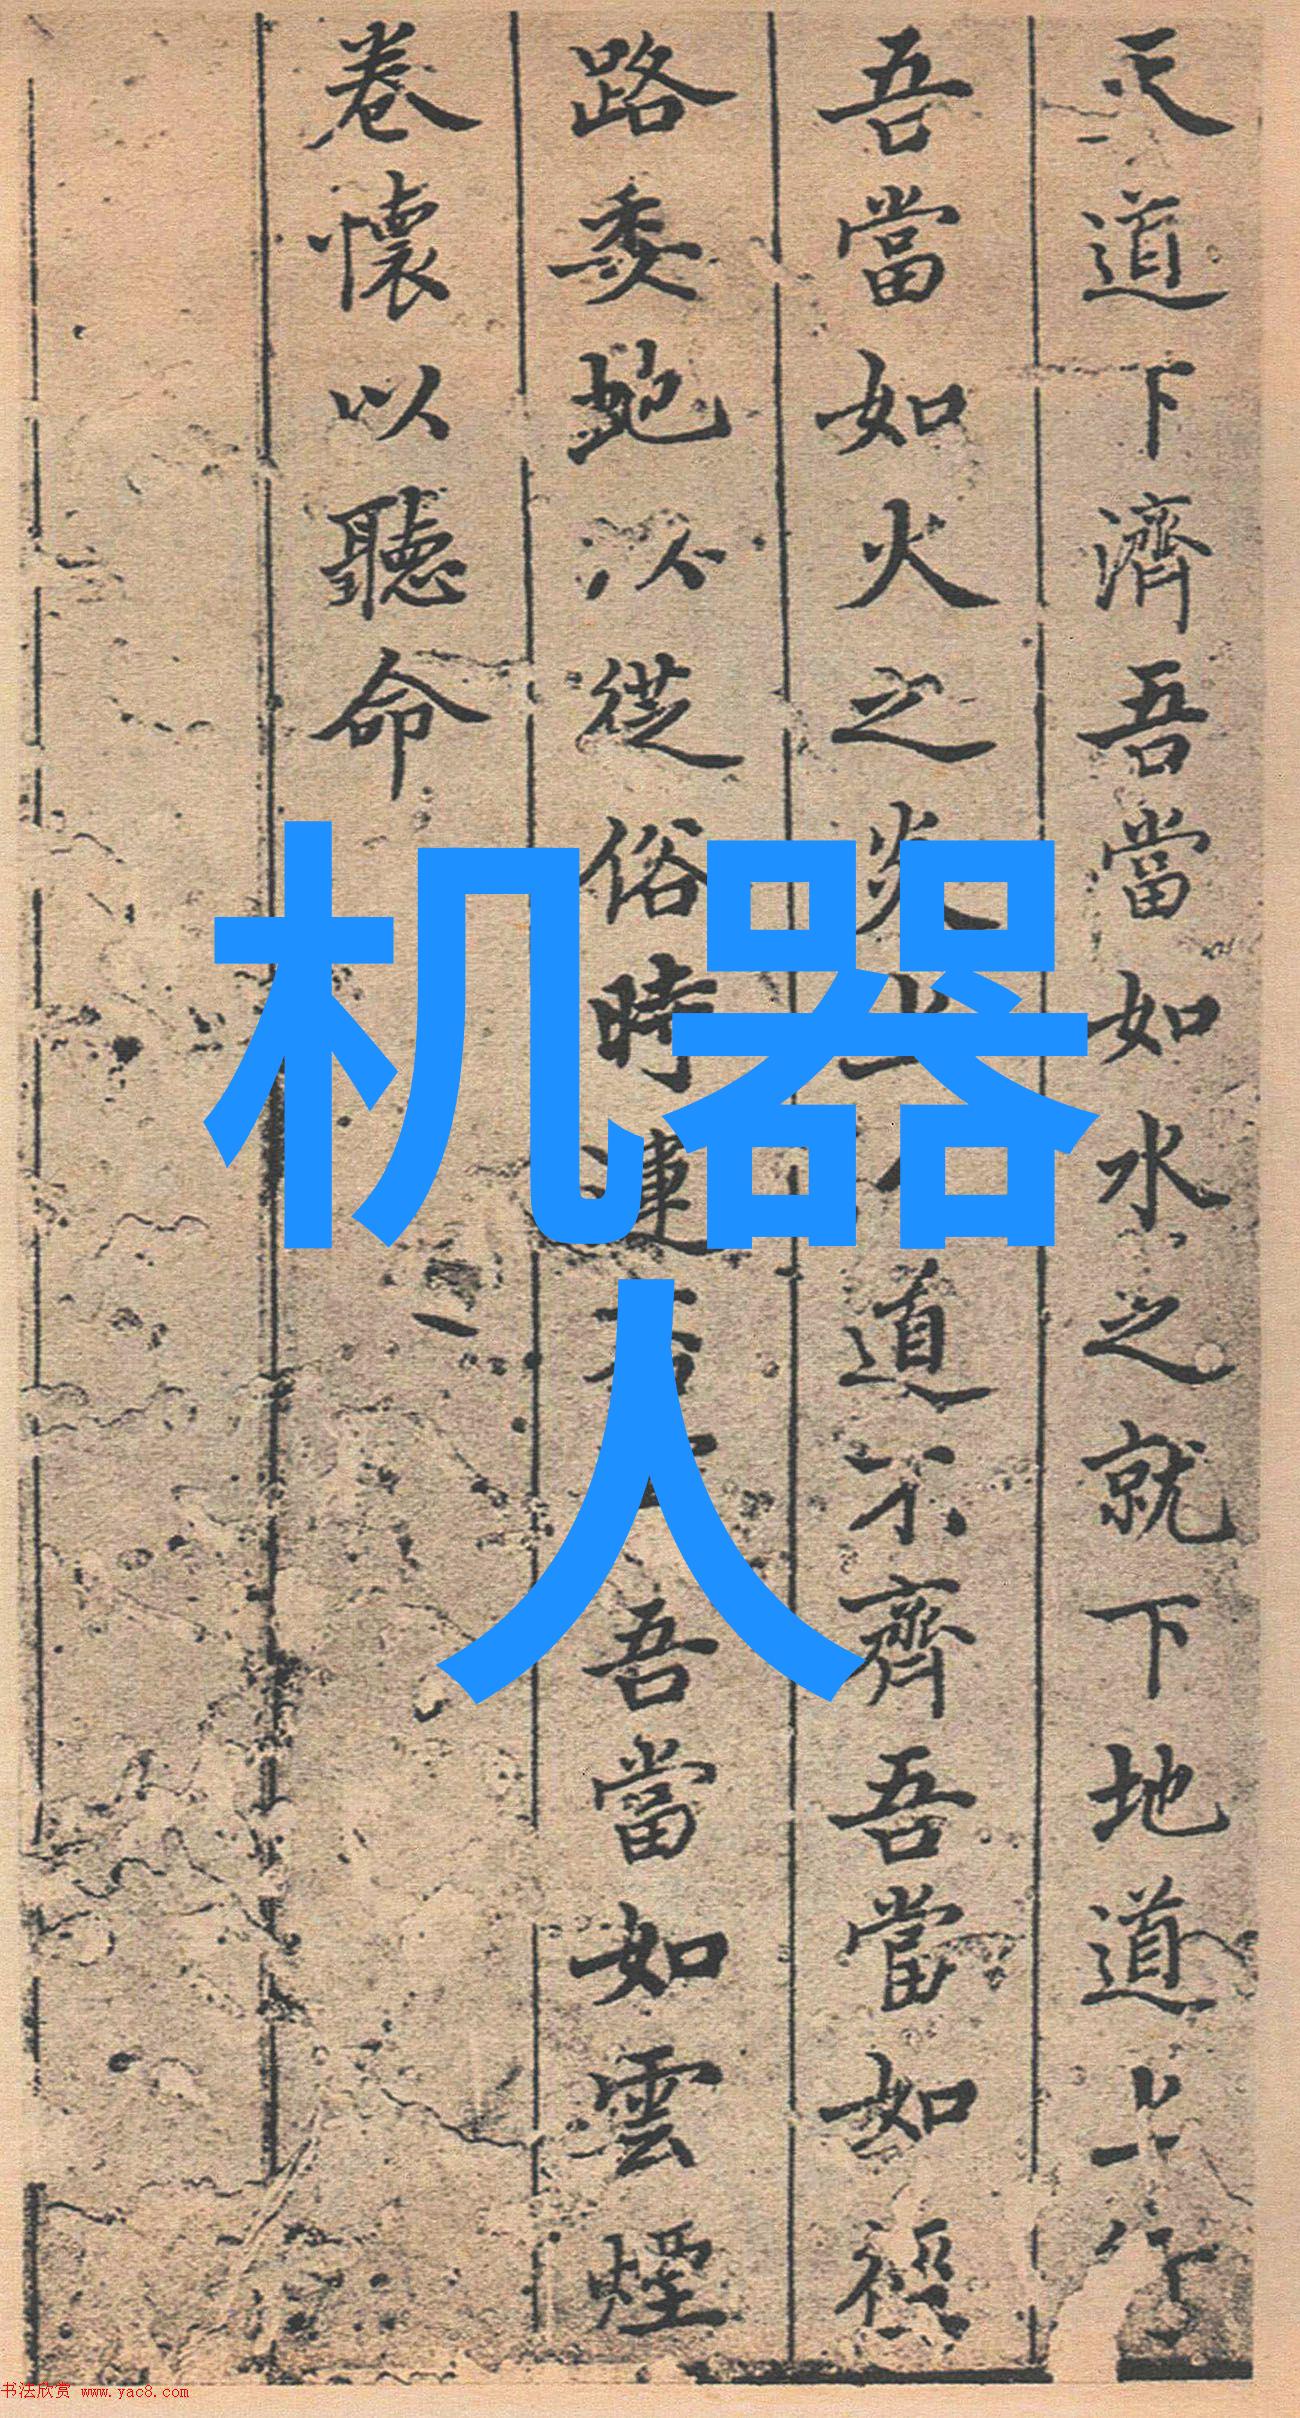 天道下濟吾當如水之就下地道上行
吾當如火之炎上人道不齊吾當如徑
路委虵以從俗時運吾當如雲煙
卷懷以聽命
机器
人
书法欣赏 www.yac8.com